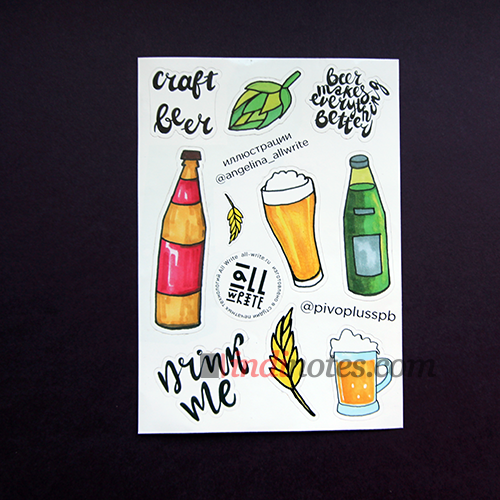 craft
beer
Beer
makes
everything
better
иллюстрации
@angelina_allwrite
технологий All Write all-write.ru изготовлено в студии печатных
all
WRITE
@pivoplusspb
Drink
me
Mindinotes.com